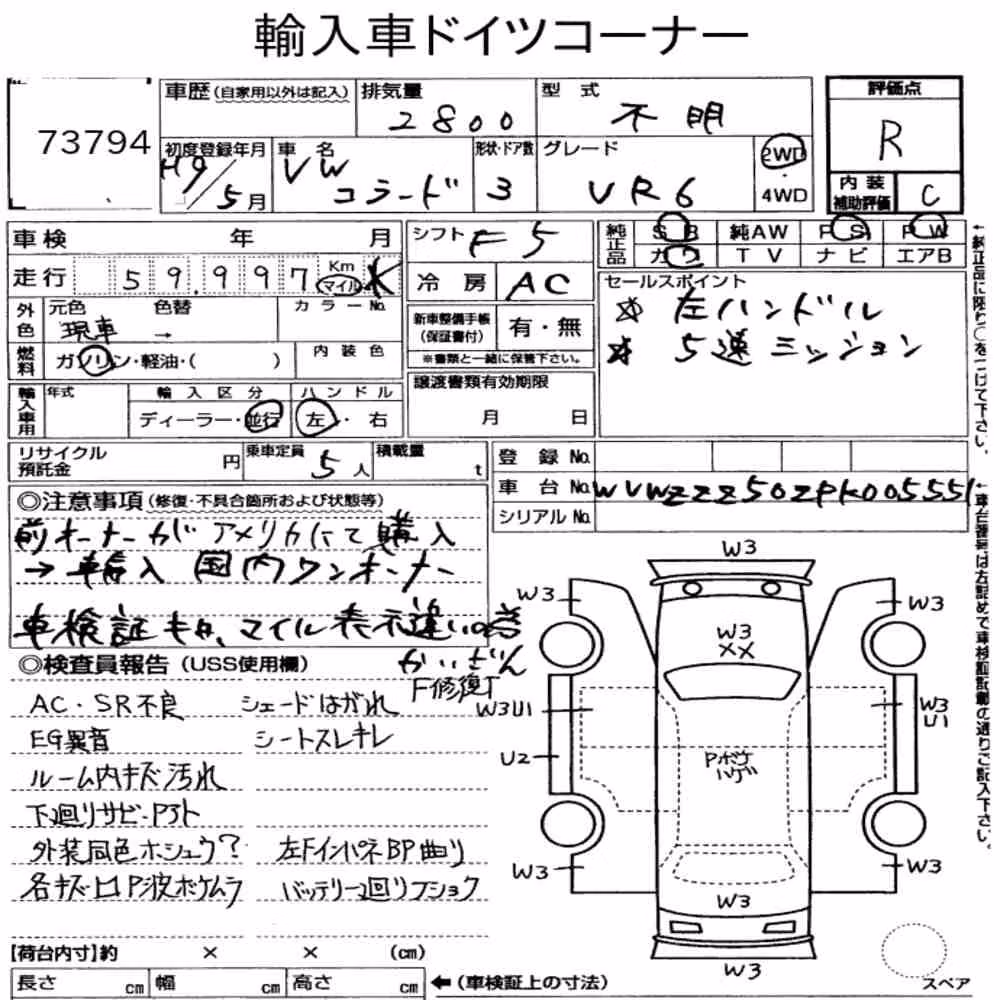 輸入車ドイツコーナー
73794
車歴(自家用以外は記入) 排気量 2800 型式 不明 評価点 R
初度登録年月 H9/5月 車名 VW コラード 形状・ドア数 3 グレード VR6 2WD 4WD 内装補助評価 C
車検 年 月 シフト F5 純正品 SR 純AW PS PW
カワ TV ナビ エアB
走行 59,997 Km マイル K 冷房 AC セールスポイント
外色 元色 現車 色替 → カラーNo. 新車整備手帳(保証書付) 有・無 ☆左ハンドル
※書類と一緒に保管下さい。 ☆5速ミッション
燃料 ガソリン・軽油・( ) 内装色
輸入車用 年式 輸入区分 ディーラー・並行 ハンドル 左・右 譲渡書類有効期限 月 日
リサイクル預託金 円 乗車定員 5人 積載量 t 登録No.
車台No. WVWZZZ50ZPK005551
シリアルNo.
←純正品に限り○をつけて下さい。
←車台番号は左詰めで車検証記載の通りご記入下さい。
◎注意事項(修復・不具合箇所および状態等)
前オーナーがアメリカにて購入
→輸入 国内ワンオーナー
車検証キロ、マイル表示違いの為
かいざん
◎検査員報告(USS使用欄) F修復T
AC・SR不良 シェードはがれ
EG異音 シートスレキレ
ルーム内キズ汚れ
下廻りサビ・Pヌト
外装同色ホシュウ? 左FインパネBP曲り
各キズ凹P波ボケムラ バッテリー2回リフショク
W3
W3 W3
W3
XX
W3U1 W3
U1
U2 Pボケ
ハゲ
W3 W3
W3
W3
スペア
【荷台内寸】約 × × (cm)
長さ cm 幅 cm 高さ cm ←(車検証上の寸法)